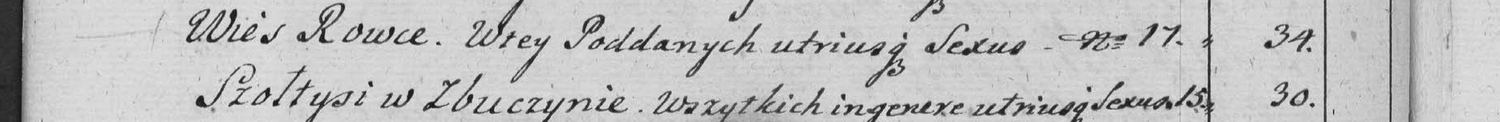 Wieś Rowce. Wtey Poddanych utriusq Sexus - No 17. 34.
Szołtysi w Zbuczynie. Wszytkich in genere utriusq Sexus. 15. 30.